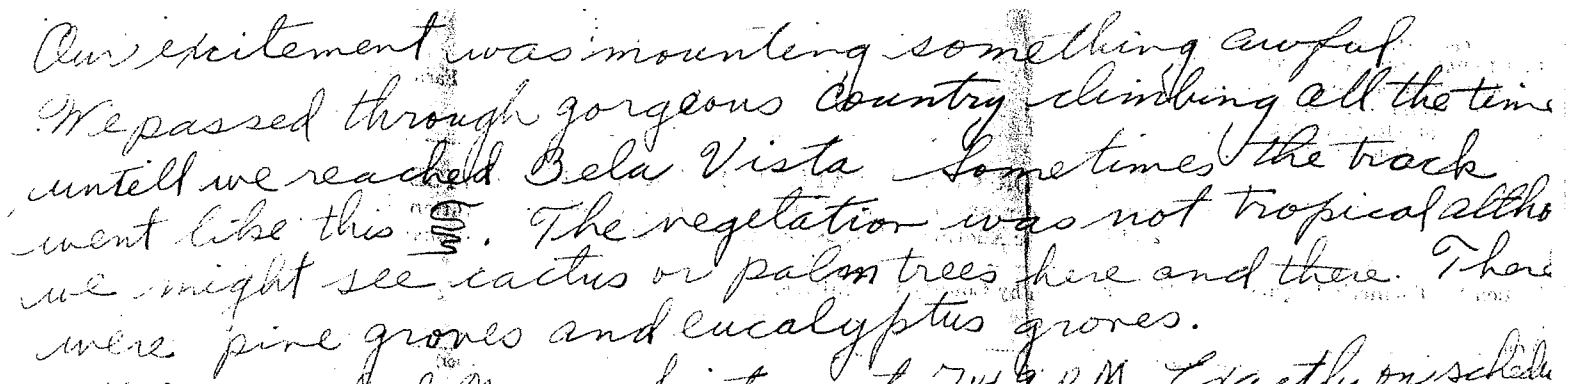 Our excitement was mounting something awful
We passed through gorgeous country climbing all the time
untill we reached Bela Vista Sometimes the track
went like this . The vegetation was not tropical altho
we might see cactus or palm trees here and there. There
were pine groves and eucalyptus groves.
P.M. Exactly on schedu